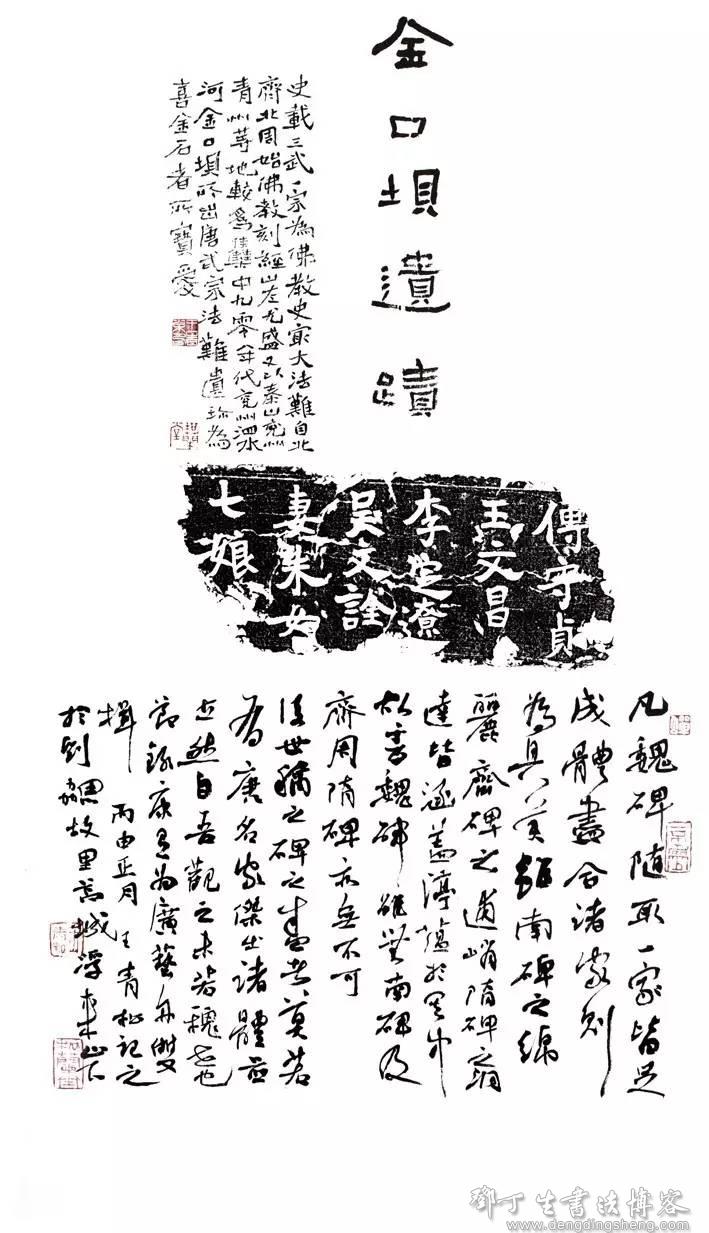 金口垻遺蹟
史載三武一宗為佛教史最大法難自北
齊北周始佛教刻經山左尤盛又以泰山兖州
青州等地較為集中九零年代兖州泗水
河金口垻所出唐武宗法難遺珍為
喜金石者所寶愛
傅守貞
王文昌
李定遼
吴文詮
妻朱女
七娘
凡魏碑隨取一家皆足
成體盡合諸家則
為具美雖南碑之綿
麗齊碑之逋峭隋碑之洞
達皆涵蓋渟蘊於其中
故言魏碑雖無南碑及
齊周隋碑亦無不可
後世稱之碑之盛者莫若
有唐名家傑出諸體並
立然自吾觀之未若魏世也
節錄康有為廣藝舟雙
楫 丙申正月王青松記之
於劉勰故里莒城浮來山下
鄧丁生書法博客
www.dengdingsheng.com